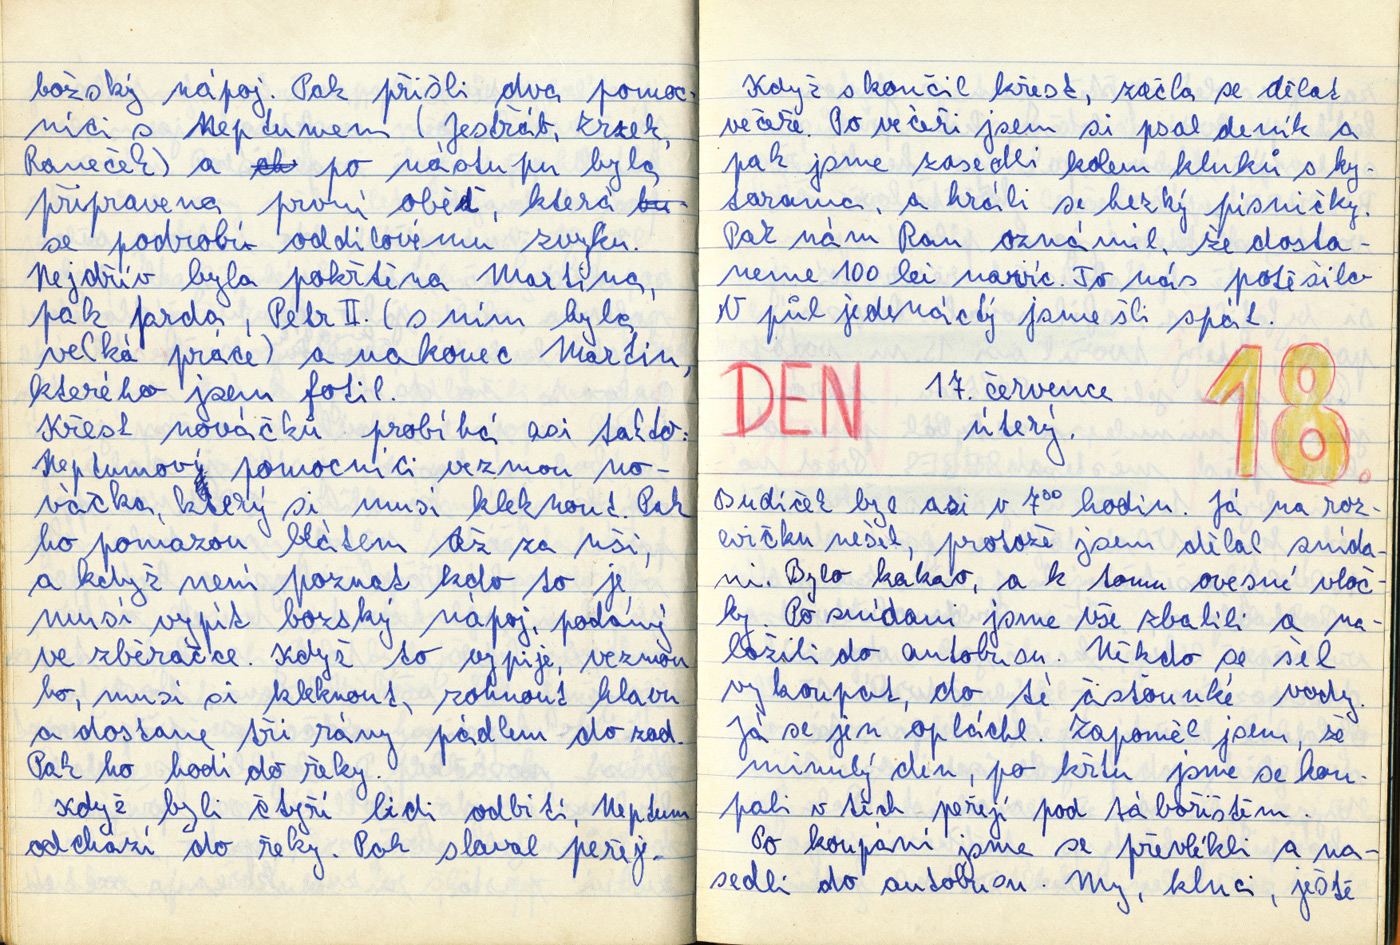 božský nápoj. Pak přišli dva pomoc-
níci s Neptunem (Jestřáb, Krzek,
Raneček) a po nástupu byla
připravena první oběť, která
se podrobí oddílovému zvyku.
Nejdřív byla pokřtěna Martina,
pak prda, Petr II. (s ním byla
velká práce) a nakonec Martin,
kterého jsem fotil.
Křest nováčků probíhá asi takto:
Neptunovi pomocníci vezmou no-
váčka, který si musí kleknout. Pak
ho pomažou blátem až za uši,
a když není poznat kdo to je,
musí vypít božský nápoj, podáný
ve zběračce. Když to vypije, vezmou
ho, musí si kleknout, rohnout hlavu
a dostane tři rány pádlem do zad.
Pak ho hodí do řeky.
Když byli čtyři lidi odbiti, Neptun
odchází do řeky. Pak slaval peřej-
Když skončil křest, začla se dělat
večeře. Po večeři jsem si psal deník a
pak jsme zasedli kolem kluků s ky-
tarama, a hráli se hezký písničky.
Pak nám Ran oznámil, že dosta-
neme 100 lei navíc. To nás potěšilo
V půl jedenáctý jsme šli spát.
DEN 17. července 18.
úterý.
Budíček byl asi v 7⁰⁰ hodin. Já na roz-
cvičku nešel, protože jsem dělal snída-
ni. Bylo kakao, a k tomu ovesné vloč-
ky. Po snídani jsme vše zbalili a na-
ložili do autobusu. Někdo se šel
vykoupat, do té čistounké vody.
Já se jen opláchl. Zapoměl jsem, že
minulý den, po křtu jsme se kou-
pali v těch peřejí pod tábořištěm.
Po koupání jsme se převlékli a na-
sedli do autobusu. My, kluci, ještě